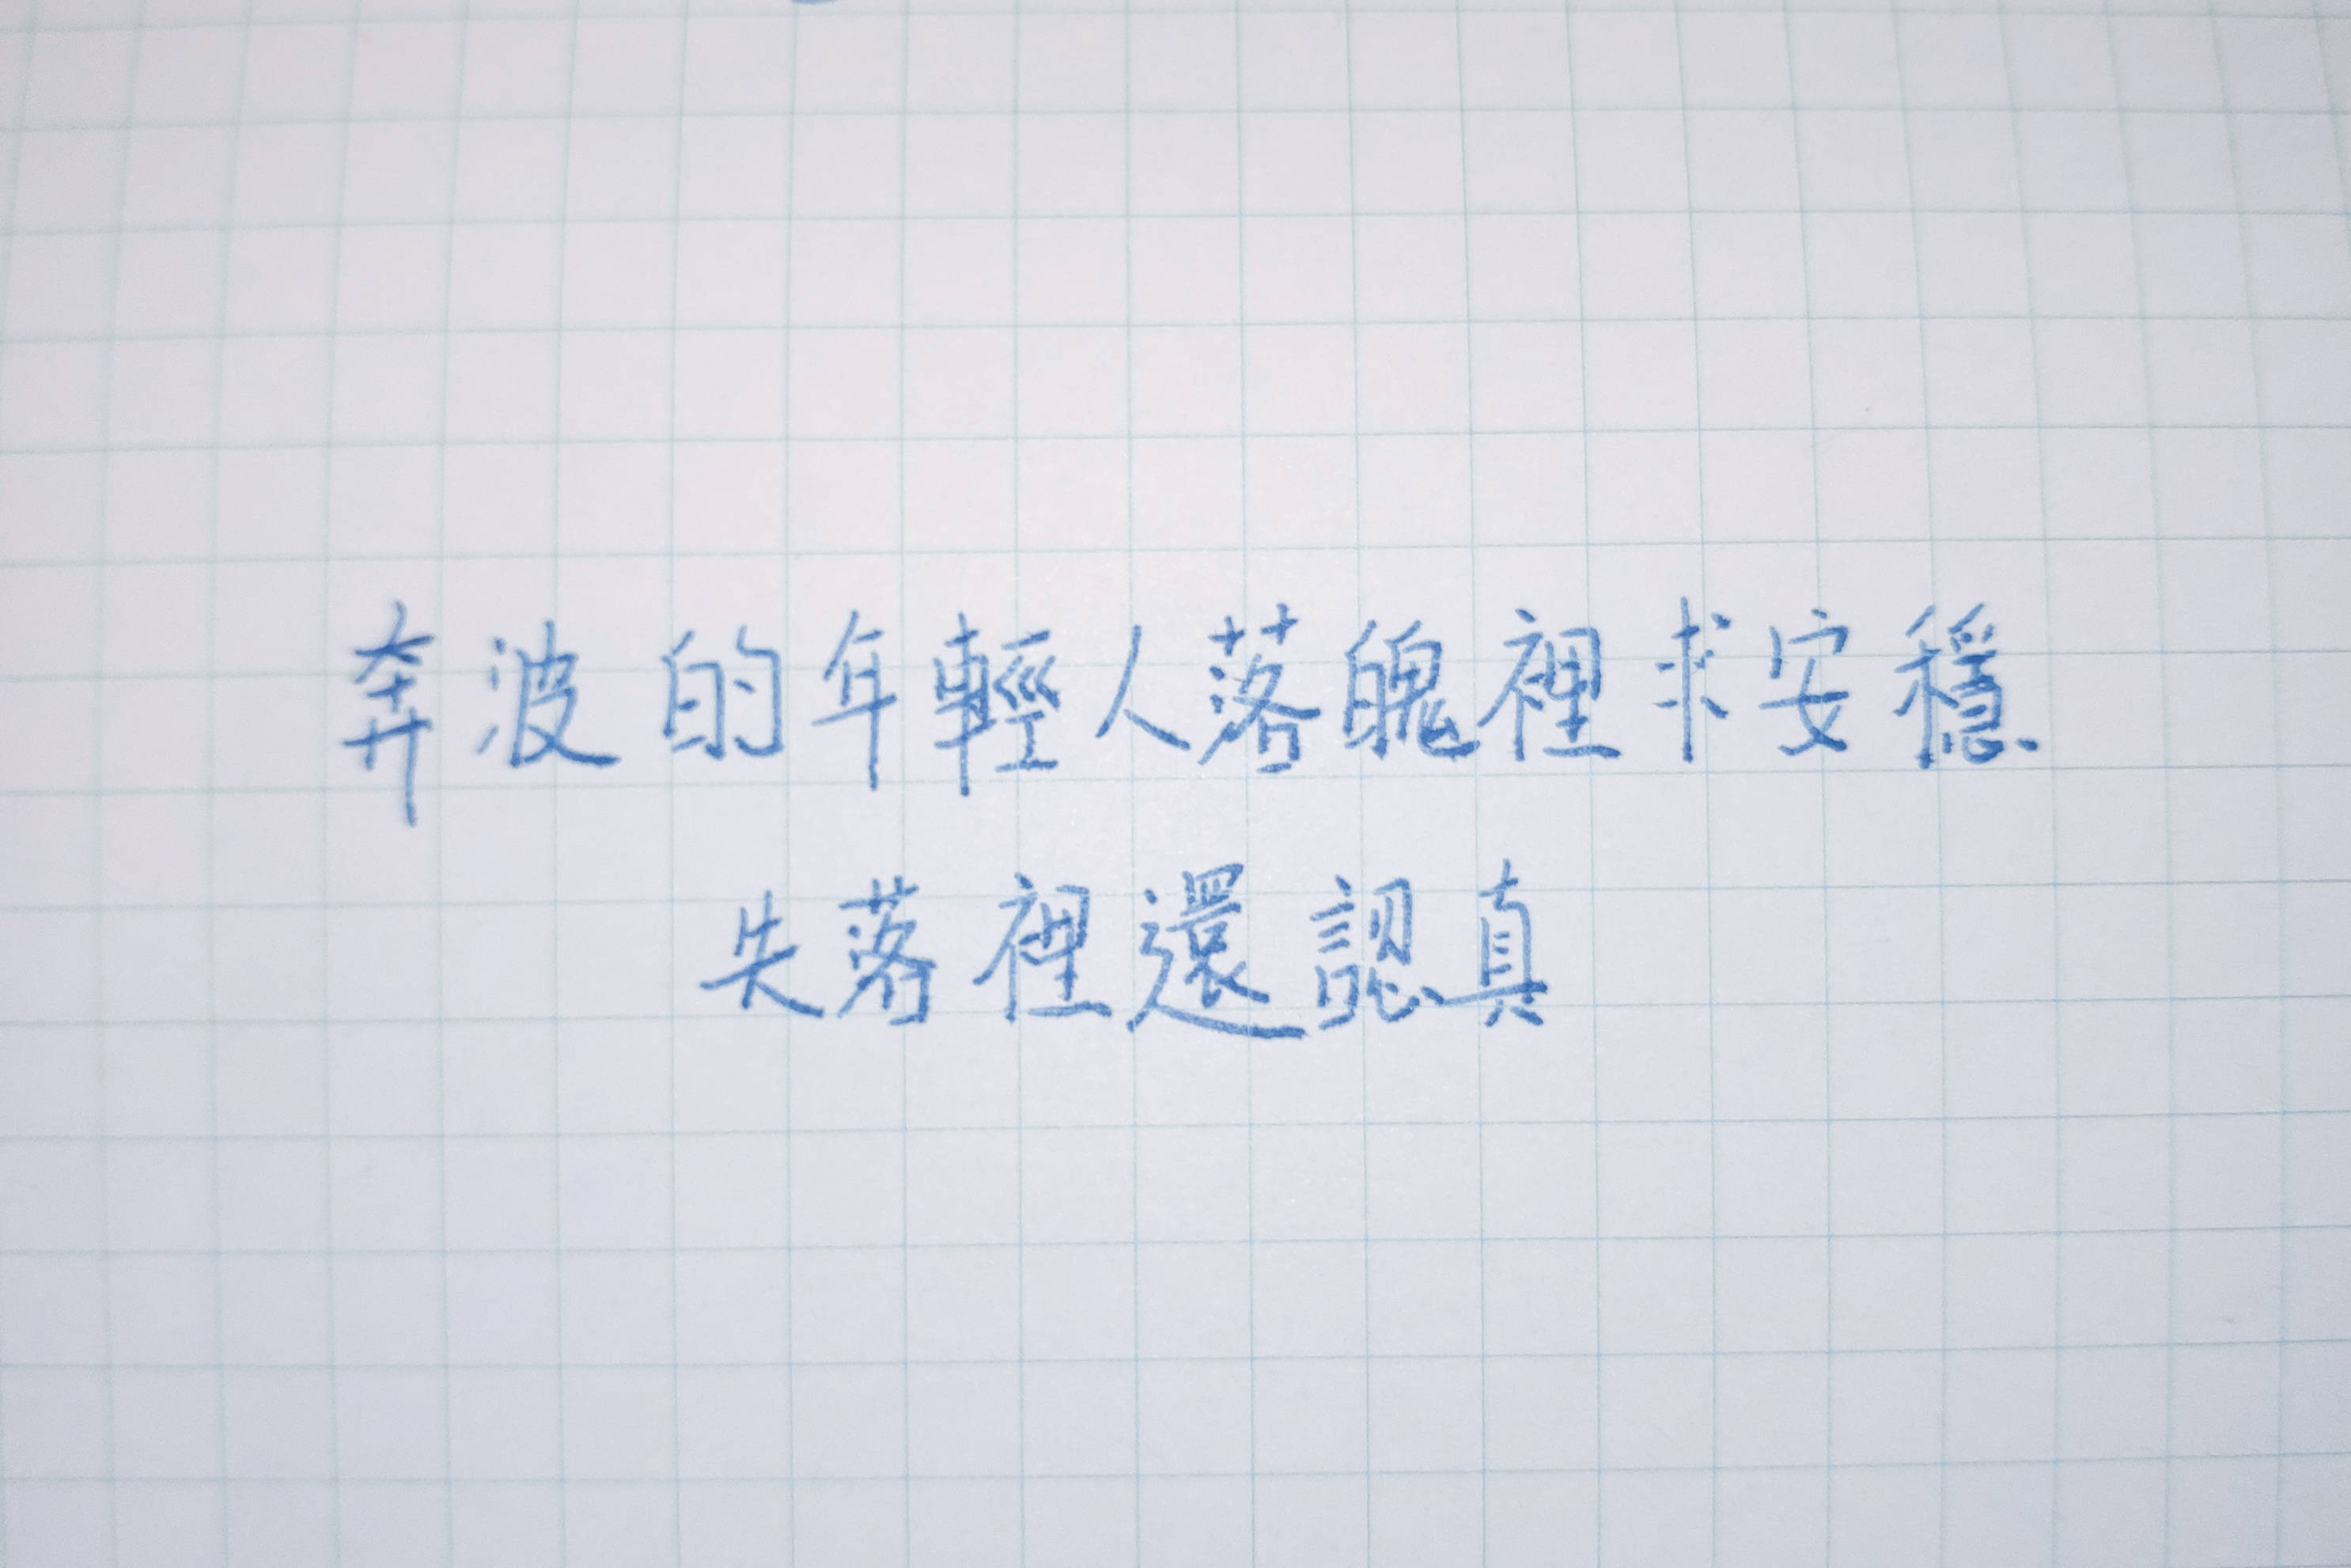 奔波的年輕人落魄裡求安穩
失落裡還認真